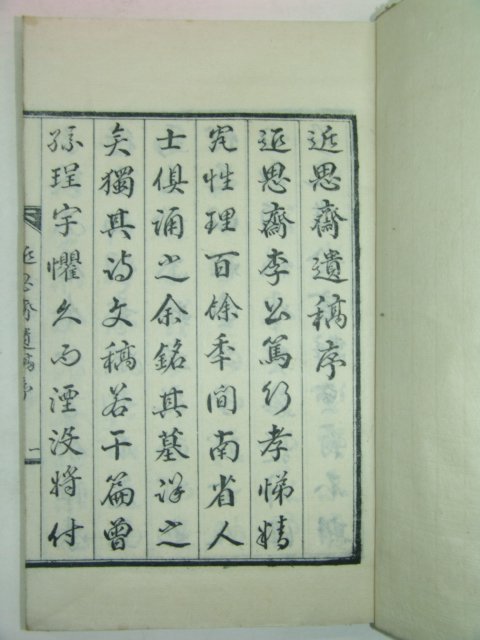 近思齋遺稿序
近思齋李公篤行孝悌精
究性理百餘年間南省人
士俱誦之余銘其墓詳之
矣獨其詩文稿若干篇曾
孫珵宇懼久而湮沒將付
近思齋遺稿序
一